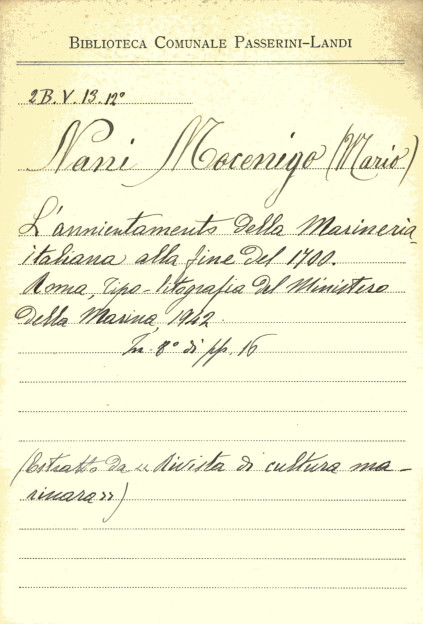 BIBLIOTECA COMUNALE PASSERINI-LANDI
2B.V.13.12°
Nani Mocenigo (Mario)
L'annientamento della Marineria
italiana alla fine del 1700.
Roma, Tipo-litografia del Ministero
della Marina, 1942
In 8° di pp. 16
(Estratto da «Rivista di cultura ma-
rinara»)